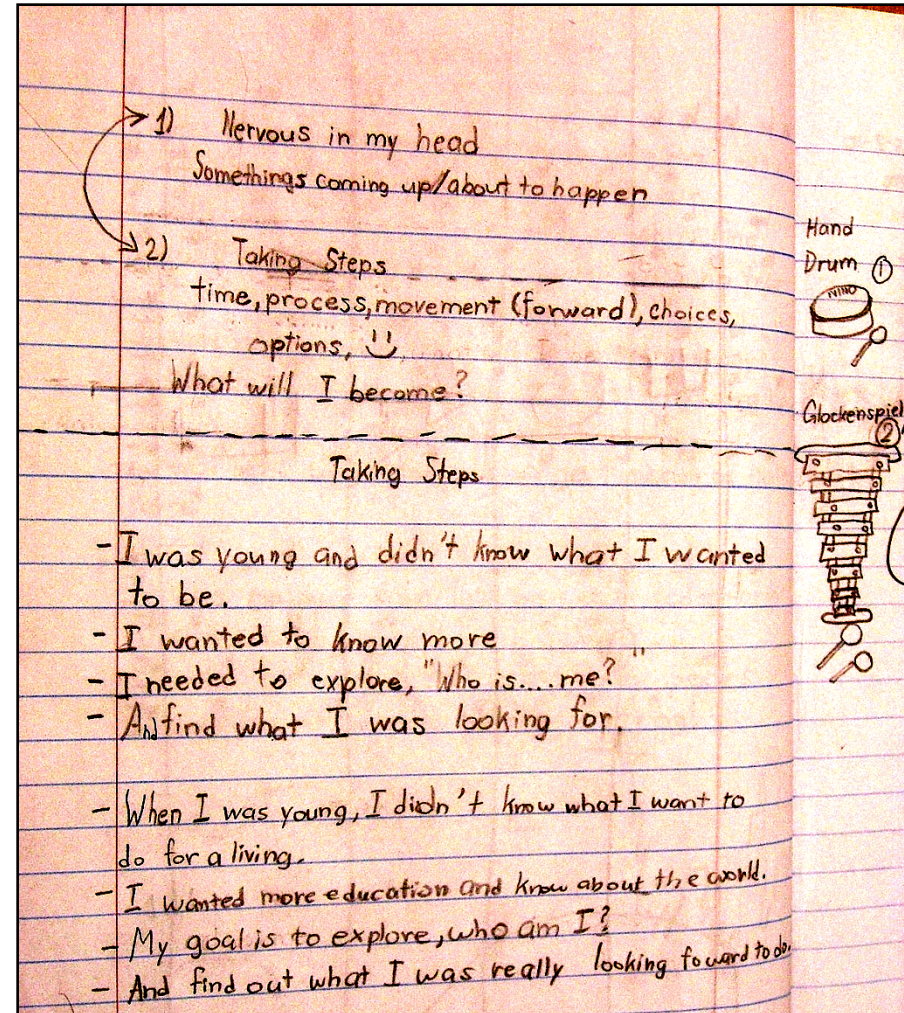 1) Nervous in my head
Somethings coming up/about to happen
2) Taking Steps
time, process, movement (forward), choices,
options,
What will I become?
Taking Steps
- I was young and didn't know what I wanted
to be.
- I wanted to know more
- I needed to explore, "Who is....me?"
- And find what I was looking for.
- When I was young, I didn't know what I want to
do for a living.
- I wanted more education and know about the world.
- My goal is to explore, who am I?
- And find out what I was really looking foward to do.
Hand
Drum ①
NINO
Glockenspiel
②